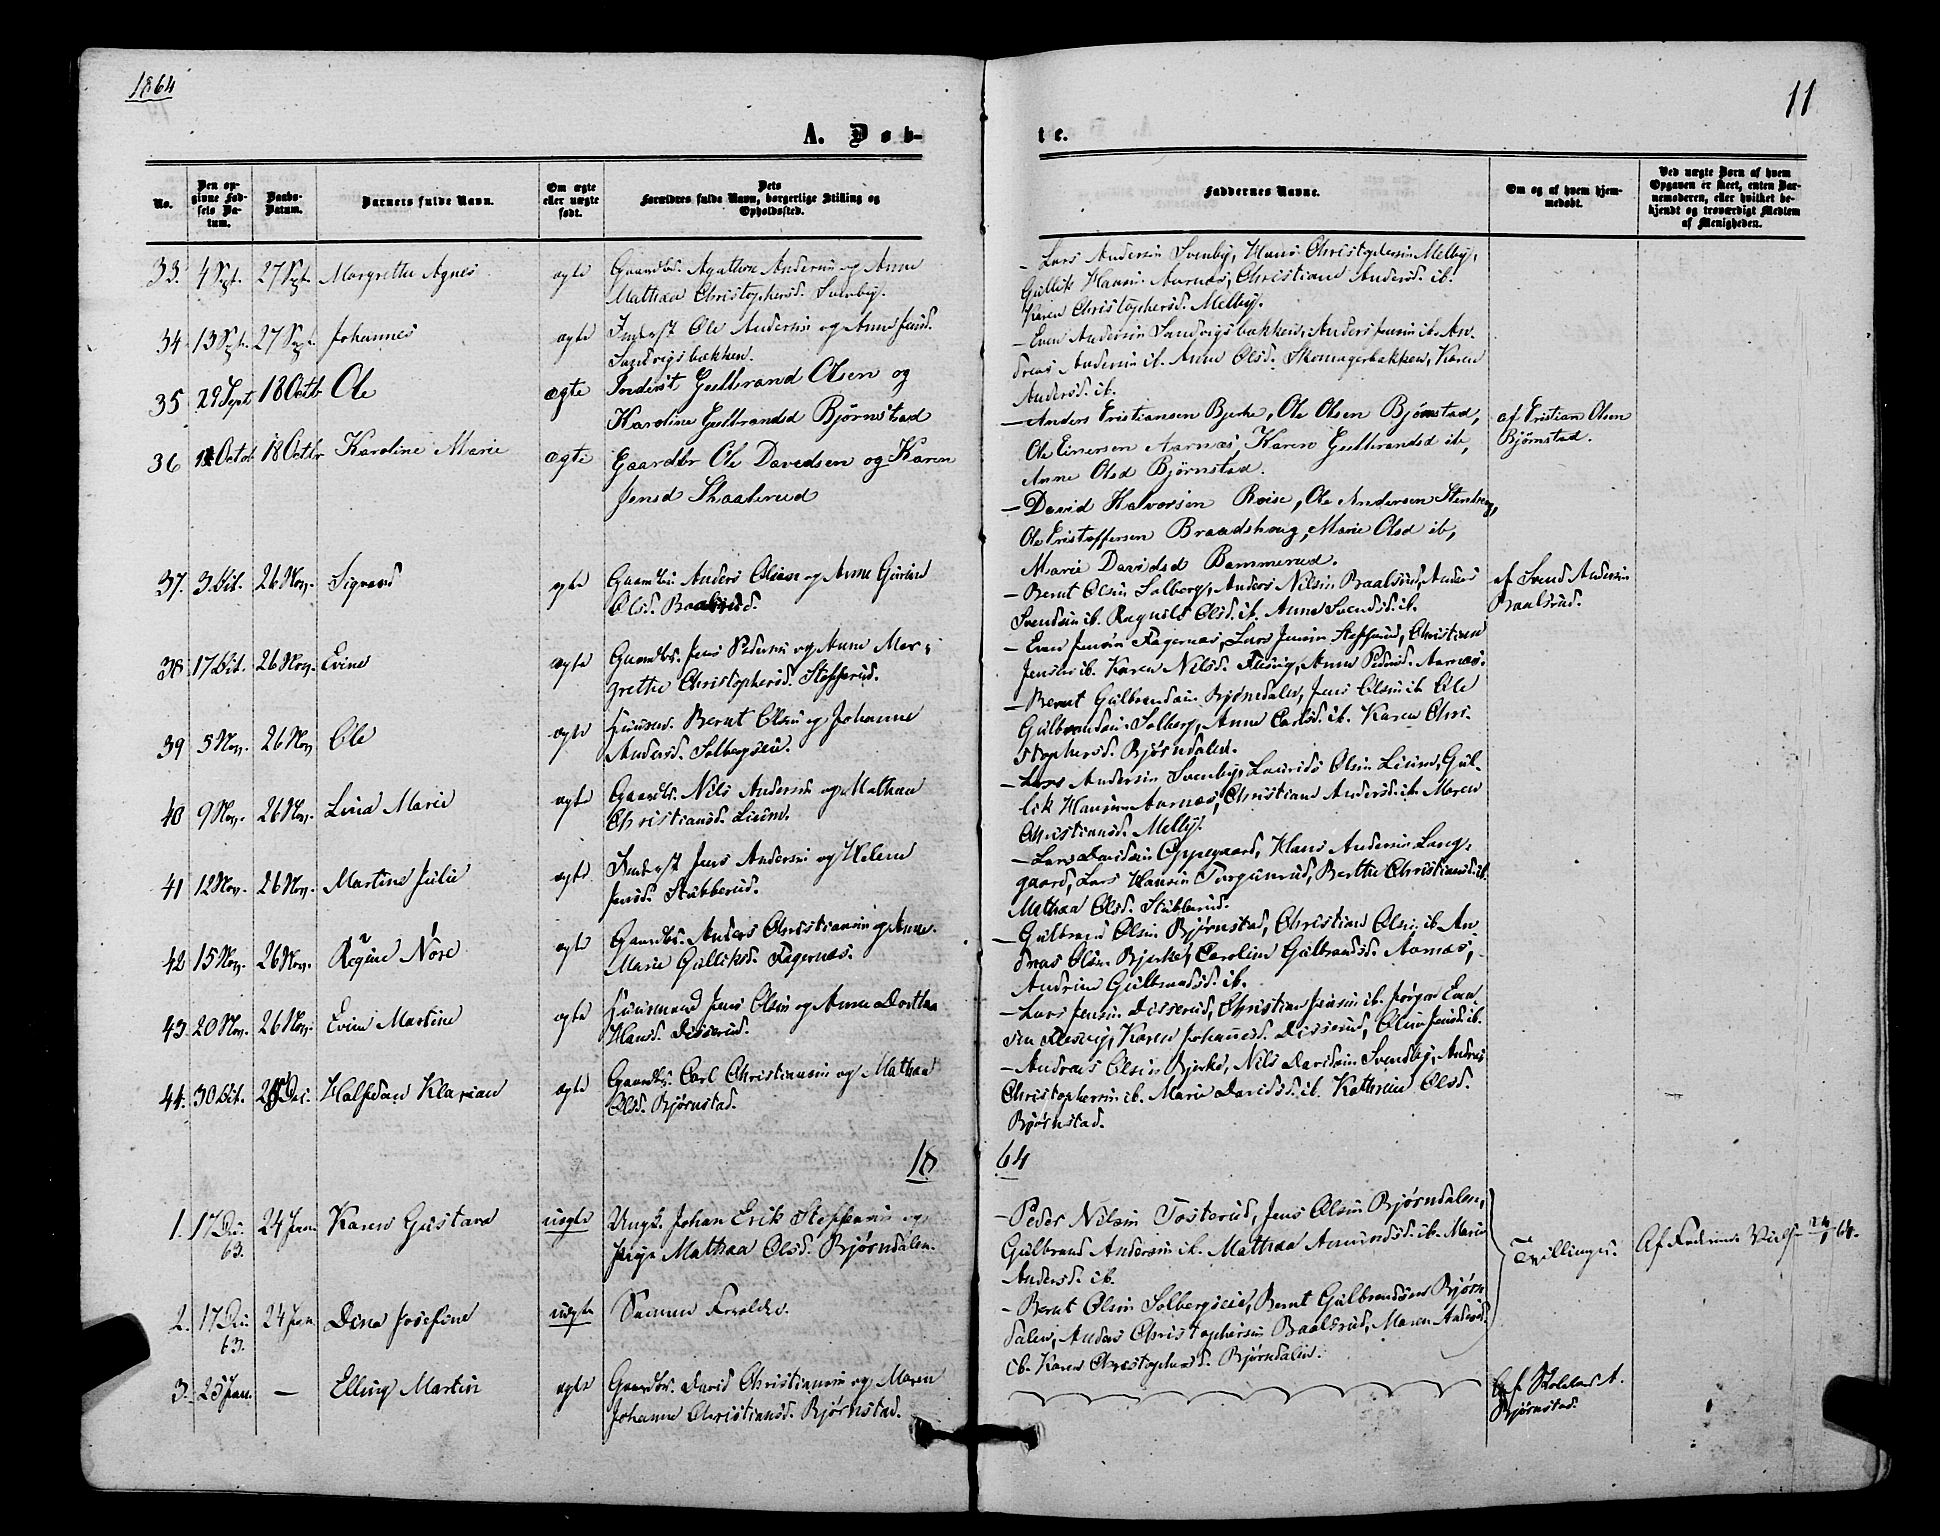 1864
11
A. Døb-
te.
No.
Den op-
givne Fød-
sels Da-
tum.
Daabs-
Datum.
Barnets fulde Navn.
Om ægte
eller uægte
født.
Dets
Forældres fulde Navn, borgerlige Stilling og
Opholdssted.
Faddernes Navne.
Om og af hvem hjem-
medøbt.
Ved uægte Børn af hvem
Opgaven er skeet, enten Bar-
nemoderen, eller hvilket be-
kjendt og troværdigt Medlem
af Menigheden.
33. 4 Spt. 27 Spt. Margrethe Agnes ægte Gaardbr. Agathon Andersen og Anne
Mathea Christophersd. Svenby.
- Lars Andersen Svenby, Hans Christophersen Melby,
Gullik Hansen Aarnæs, Christiane Andersd. ib.
Karen Christophersd. Melby.
34 13 Spt. 27 Spt. Johannes ægte Inderst Ole Andersen og Anne Jensd.
Sandvigsbakken.
- Even Andersen Sandvigsbakken, Anders Jensen ib. An-
dreas Andersen ib. Anne Olsd. Skomagerbakken, Karen
Andersd. ib.
35 29 Sept 18 Octbr Ole ægte Inderst Gulbrand Olsen og
Karoline Gulbrandsd Bjørnstad
- Anders Kristiansen Bjerke, Ole Olsen Bjørnstad,
Ole Einersen Aarnæs, Karen Gulbrandsd ib,
Anne Olsd Bjørnstad.
af Kristian Olsen
Bjørnstad.
36 Octob 18 Octbr Karoline Marie ægte Gaardbr Ole Davidsen og Karen
Jensd Skaalerud
- David Halvorsen Roise, Ole Andersen Stenberg,
Ole Kristoffersen Braadshaug, Marie Olsd ib,
Marie Davidsd Bammerud.
37. 3 Oct. 26 Nov. Sigvard ægte Gaardbr. Anders Olsen og Anne
Olsd. Baalsrud.
- Bernt Olsen Solberg, Anders Nilsen Baalsrud, Anders
Svendsen ib. Ragnild Olsd. ib. Anne Svendsd. ib.
af Svend Andersen
Baalsrud.
38 17 Oct. 26 Nov. Evine ægte Gaardbr. Jens Pedersen og Anne Mar-
grethe Christophersd. Stefferud.
- Even Jensen Fagernæs, Lars Jensen Stefferud, Christian
Jensen ib. Karen Nilsd. Flesvig, Anne Pedersd. Aarnæs.
39 5 Nov. 26 Nov Ole ægte Huusmd. Bernt Olsen og Johanne
Andersd. Solbergseie.
- Bernt Gulbrandsen Bjørndalen, Jens Olsen ib. Ole
Gulbrandsen Solberg, Anne Carlsd. ib. Karen Chri-
stophersd. Bjørndalen.
40 9 Nov. 26 Nov. Lina Marie ægte Gaardbr. Nils Andersen og Mathea
Christiansd. Lium.
- Lars Andersen Svenby, Laurids Olsen Lium, Gul-
lik Hansen Aarnæs, Christiane Andersd. ib. Maren
Christiansd. Melby.
41 12 Nov. 26 Nov. Martine Julie ægte Inderst Jens Andersen og Helene
Jensd. Stubberud.
- Lars Davidsen Oppegaard, Hans Andersen Lang-
gaard, Lars Hansen Torgunrud, Berthe Christiansd. ib.
Mathea Olsd. Stubberud.
42 15 Nov. 26 Nov. Regine Nore ægte Gaardbr. Anders Christiansen og Anne
Marie Gulliksd. Fagernæs.
- Gulbrand Olsen Bjørnstad, Christian Olsen ib. An-
dreas Olsen Bjerke, Caroline Gulbrandsd. Aarnæs,
Andrine Gulbrandsd. ib.
43. 20 Nov. 26 Nov. Evine Martine ægte Huusmand Jens Olsen og Anne Dorthea
Hansd. Disserud.
- Lars Jensen Disserud, Christian Jensen ib. Jørgen Even-
sen Flesvig, Karen Johannesd. Disserud, Oline Jensd. ib.
44. 30 Oct. Dec. Halfdan Klarian ægte Gaardbr. Carl Christiansen og Mathea
Olsd. Bjørnstad.
- Andreas Olsen Bjerke, Nils Davidsen Svendby, Andreas
Christophersen ib. Marie Davidsd. ib. Kathrine Olsd.
Bjørnstad.
18 64
1. 17 De. 63. 24 Jan. Karen Gustava uægte Ungk. Johan Erik Steffensen og
Pige Mathea Olsd. Bjørndalen.
- Peder Nilsen Tosterud, Jens Olsen Bjørndalen,
Gulbrand Andersen ib. Mathea Amundsd. ib. Marie
Andersd. ib.
Tvillinger.
Af Faderens 24/1 64.
2. 17 De. 63. 24 Jan Dina Josefine uægte Samme Forældre.
- Bernt Olsen Solbergseie, Bernt Gulbrandsen Bjørn-
dalen, Andreas Christophersen Baalsrud, Maren Andersd.
ib. Karen Christophersd. Bjørndalen.
3. 25 Jan. - Elling Martin ægte Gaardbr. David Christiansen og Maren
Johanne Christiansd. Bjørnstad.
af Skolelær. A.
Bjørnstad.